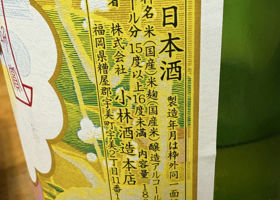 日本酒
製造年月は枠外同一面
料名 米(国産)米麹(国産米)醸造アルコール
ール分 15度以上16度未満 内容量
者 株式会社 小林酒造本店
福岡県糟屋郡宇美町宇美2丁目11番